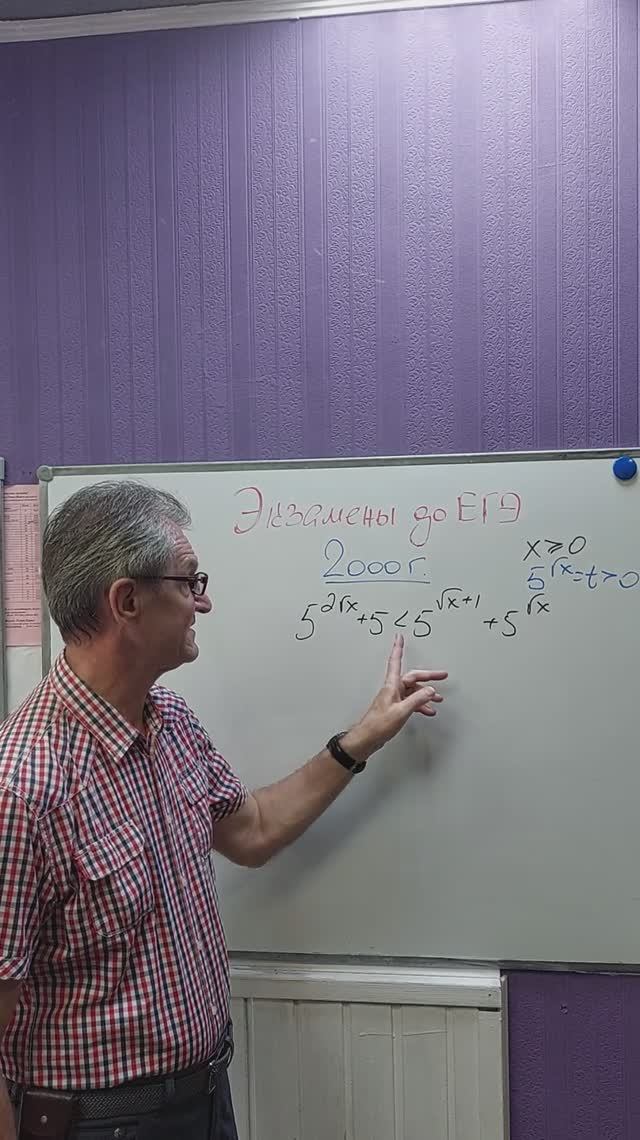 Экзамены до ЕГЭ
2000г.
x ⩾ 0
5^√x = t > 0
5^2√x + 5 < 5^√x+1 + 5^√x